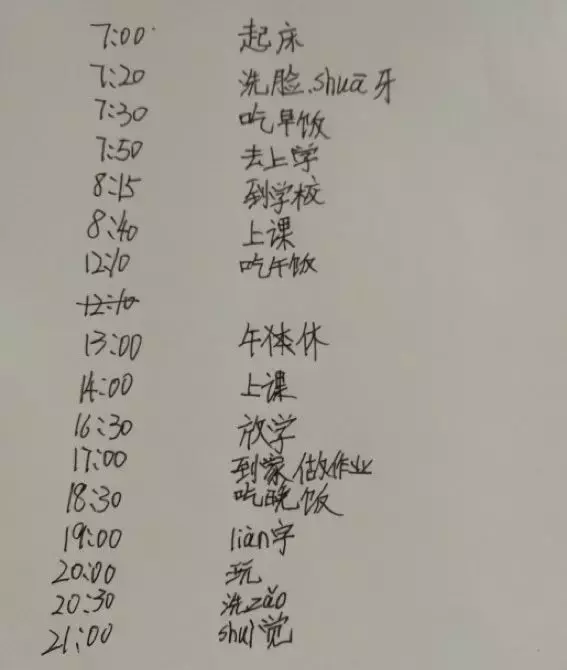 7:00 起床
7:20 洗脸、shuā牙
7:30 吃早饭
7:50 去上学
8:15 到学校
8:40 上课
12:10 吃午饭
12:10
13:00 午休
14:00 上课
16:30 放学
17:00 到家做作业
18:30 吃晚饭
19:00 liàn字
20:00 玩
20:30 洗zǎo
21:00 shuì觉